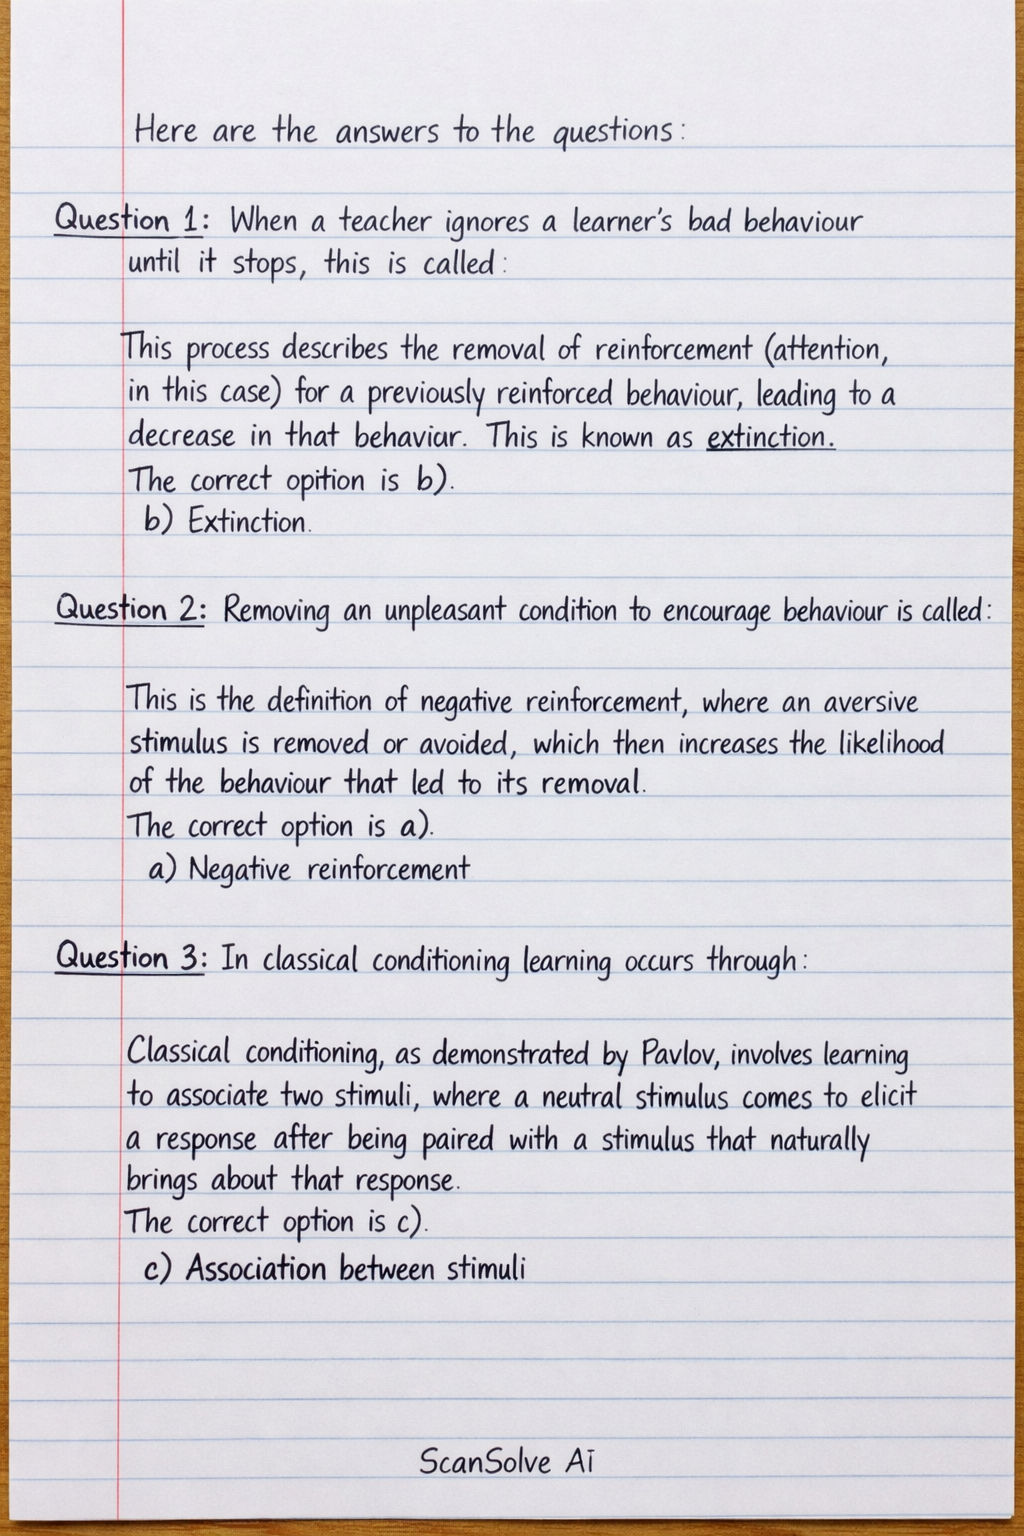 Here are the answers to the questions:
Question 1: When a teacher ignores a learner's bad behaviour
until it stops, this is called:
This process describes the removal of reinforcement (attention,
in this case) for a previously reinforced behaviour, leading to a
decrease in that behaviar. This is known as extinction.
The correct opition is b).
b) Extinction.
Question 2: Removing an unpleasant condition to encourage behaviour is called:
This is the definition of negative reinforcement, where an aversive
stimulus is removed or avoided, which then increases the likelihood
of the behaviour that led to its removal.
The correct option is a).
a) Negative reinforcement
Question 3: In classical conditioning learning occurs through:
Classical conditioning, as demonstrated by Pavlov, involves learning
to associate two stimuli, where a neutral stimulus comes to elicit
a response after being paired with a stimulus that naturally
brings about that response.
The correct option is c).
c) Association between stimuli
ScanSolve AI